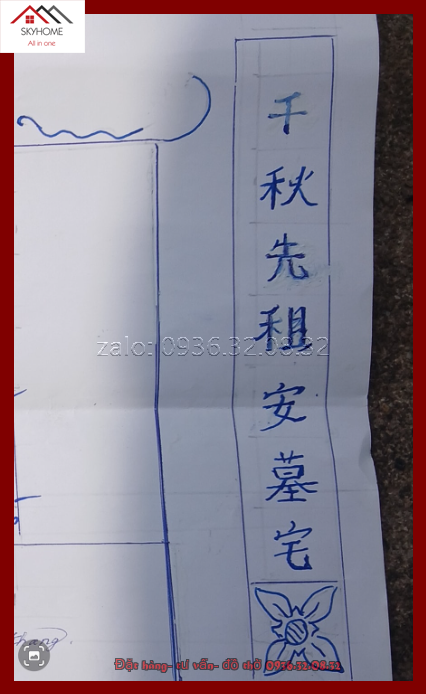 SKYHOME
All in one
千秋先租安墓宅
zalo: 0936.32.08.32
Đặt hàng- tư vấn- đồ chữ 0936.32.08.32